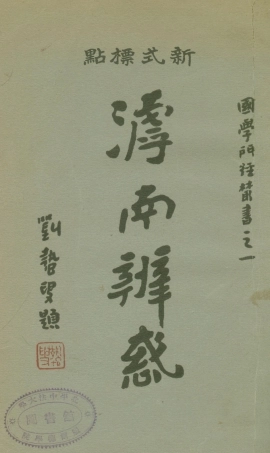 新式標點
國學門徑叢書之一
滹南辨惑
劉蟄叟題